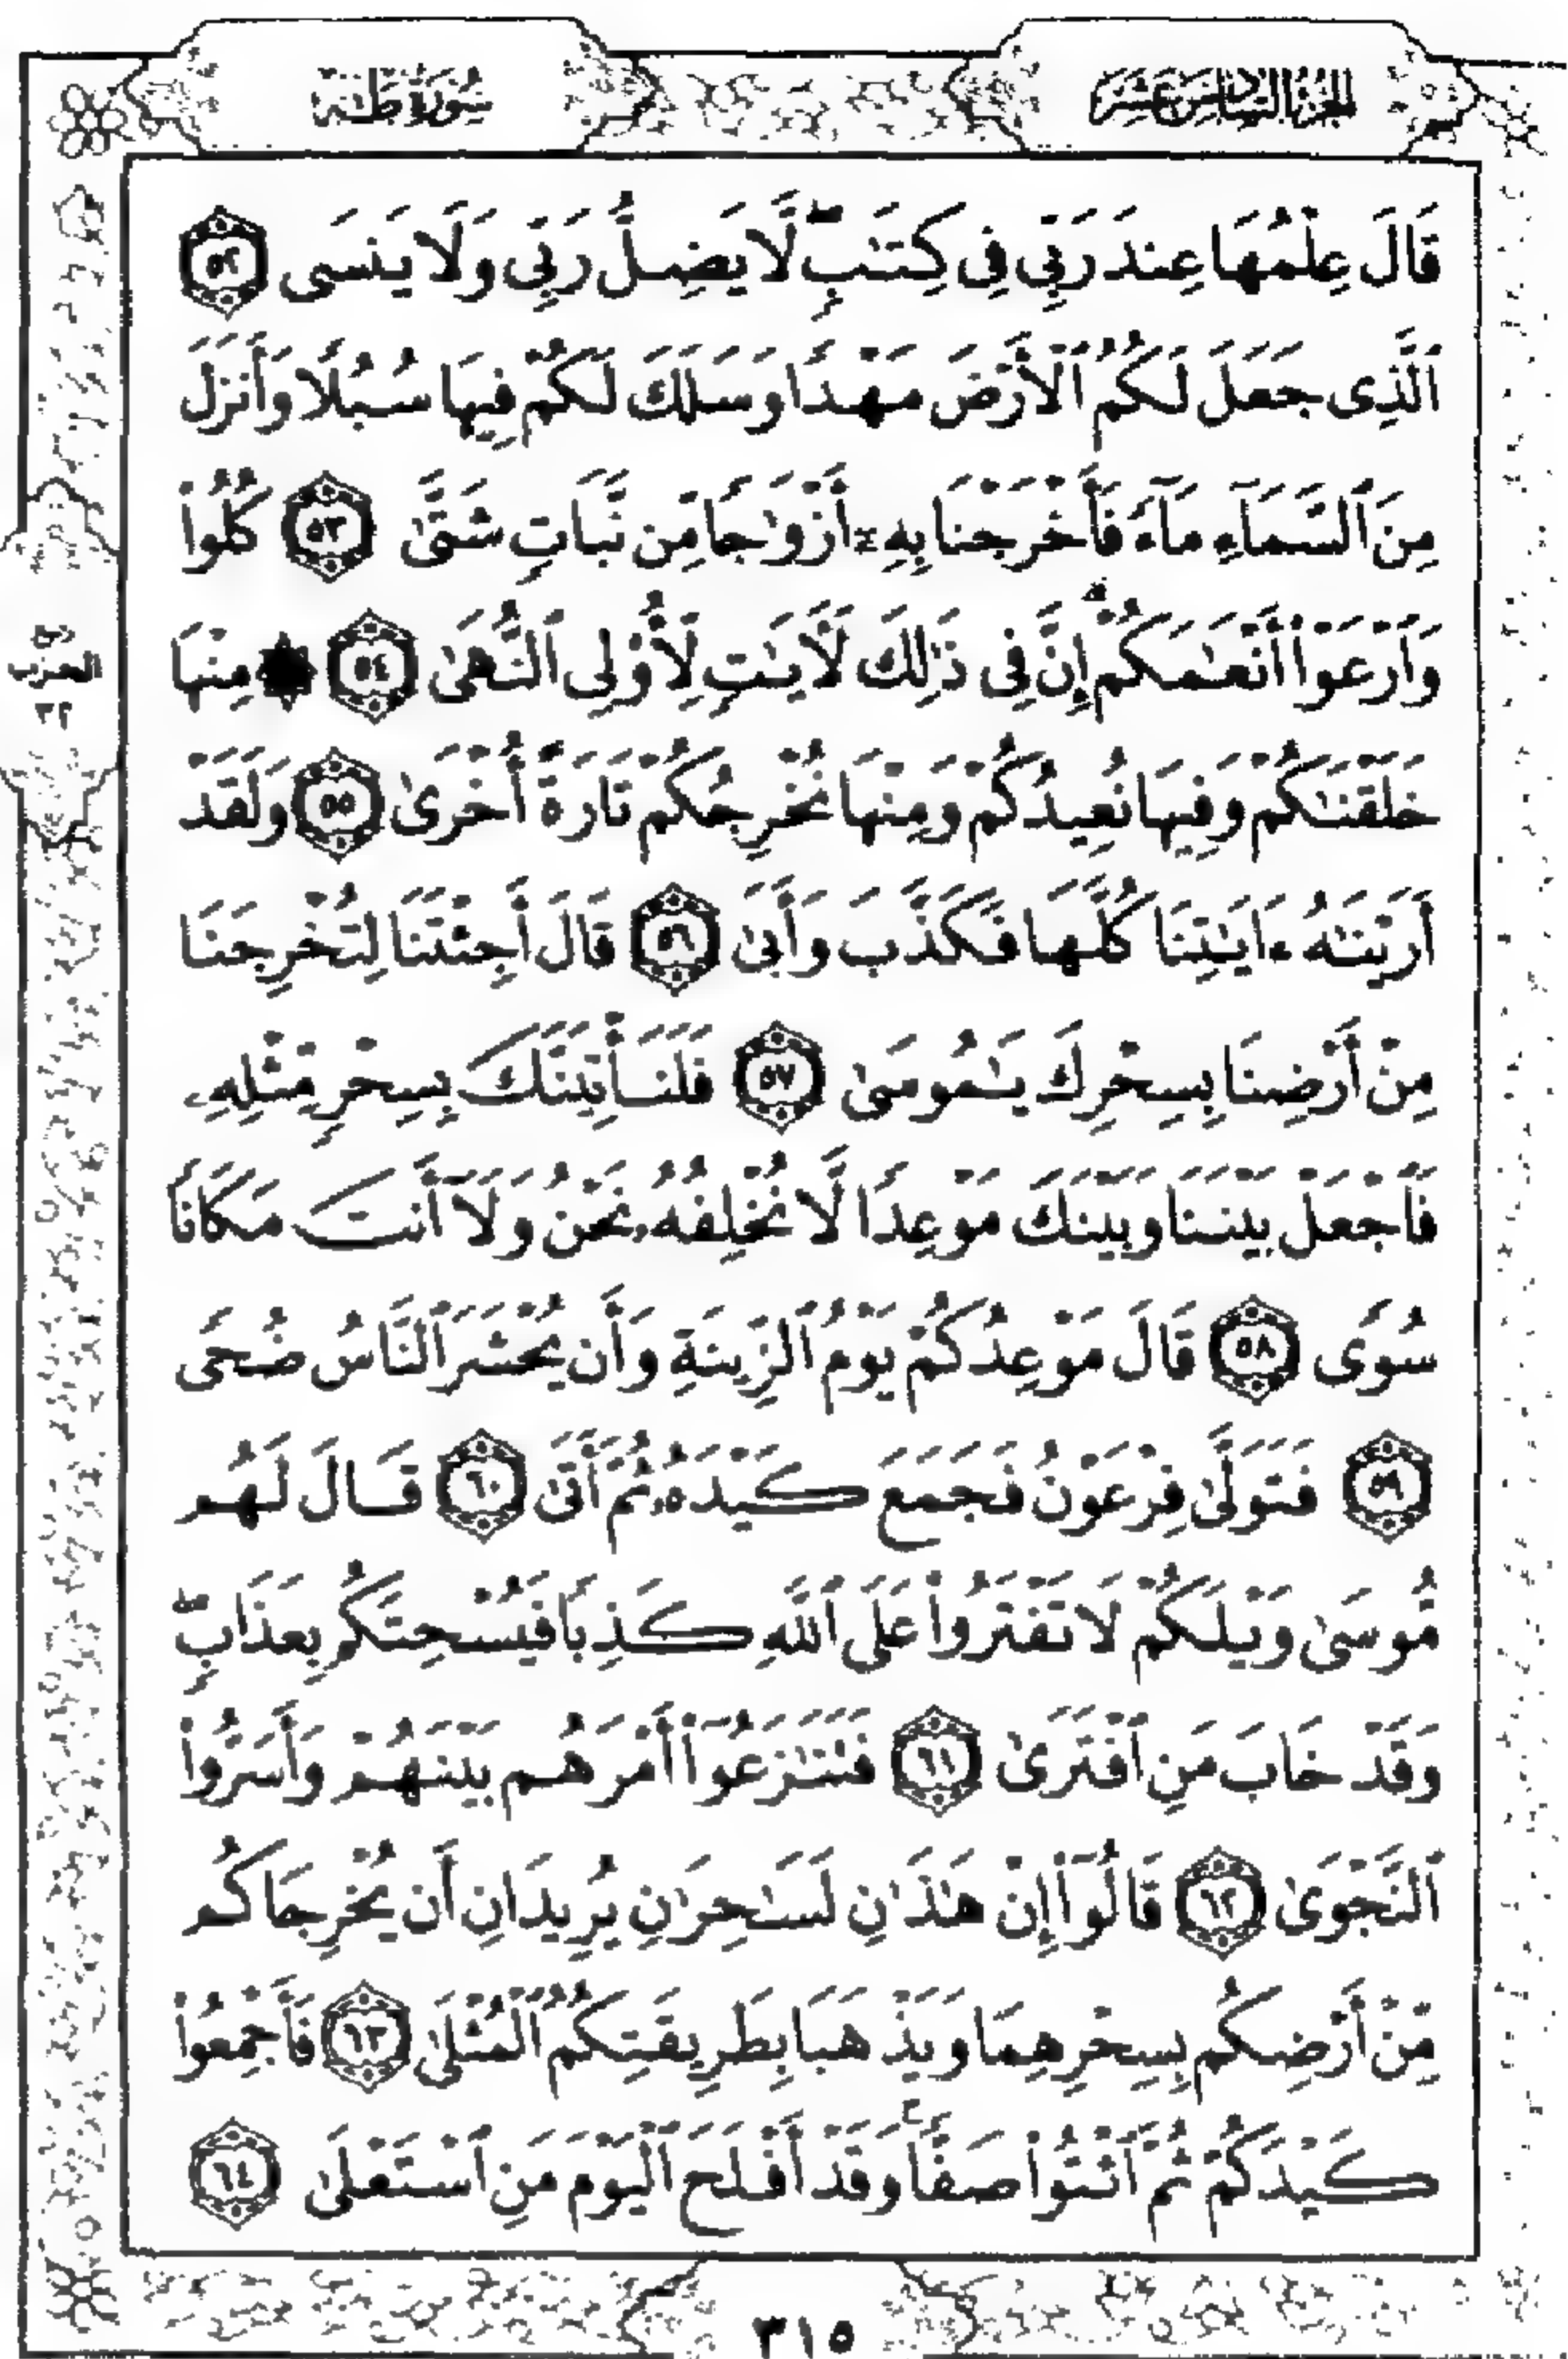 الجزء السادس عشر
سورة طه
قَالَ عِلْمُهَا عِندَ رَبِّي فِي كِتَٰبٍۖ لَّا يَضِلُّ رَبِّي وَلَا يَنسَى ٥٢
ٱلَّذِى جَعَلَ لَكُمُ ٱلْأَرْضَ مَهْدًا وَسَلَكَ لَكُمْ فِيهَا سُبُلًا وَأَنزَلَ
مِنَ ٱلسَّمَآءِ مَآءً فَأَخْرَجْنَا بِهِۦٓ أَزْوَٰجًا مِّن نَّبَاتٍ شَتَّىٰ ٥٣ كُلُوا۟
وَٱرْعَوْا۟ أَنْعَٰمَكُمْۗ إِنَّ فِى ذَٰلِكَ لَءَايَٰتٍ لِّأُو۟لِى ٱلنُّهَىٰ ٥٤ ۞ مِنْهَا
خَلَقْنَٰكُمْ وَفِيهَا نُعِيدُكُمْ وَمِنْهَا نُخْرِجُكُمْ تَارَةً أُخْرَىٰ ٥٥ وَلَقَدْ
أَرَيْنَٰهُ ءَايَٰتِنَا كُلَّهَا فَكَذَّبَ وَأَبَىٰ ٥٦ قَالَ أَجِئْتَنَا لِتُخْرِجَنَا
مِنْ أَرْضِنَا بِسِحْرِكَ يَٰمُوسَىٰ ٥٧ فَلَنَأْتِيَنَّكَ بِسِحْرٍ مِّثْلِهِۦ
فَٱجْعَلْ بَيْنَنَا وَبَيْنَكَ مَوْعِدًا لَّا نُخْلِفُهُۥ نَحْنُ وَلَآ أَنتَ مَكَانًا
سُوًى ٥٨ قَالَ مَوْعِدُكُمْ يَوْمُ ٱلزِّينَةِ وَأَن يُحْشَرَ ٱلنَّاسُ ضُحًى
٥٩ فَتَوَلَّىٰ فِرْعَوْنُ فَجَمَعَ كَيْدَهُۥ ثُمَّ أَتَىٰ ٦٠ قَالَ لَهُم
مُّوسَىٰ وَيْلَكُمْ لَا تَفْتَرُوا۟ عَلَى ٱللَّهِ كَذِبًا فَيُسْحِتَكُم بِعَذَابٍۖ
وَقَدْ خَابَ مَنِ ٱفْتَرَىٰ ٦١ فَتَنَٰزَعُوٓا۟ أَمْرَهُم بَيْنَهُمْ وَأَسَرُّوا۟
ٱلنَّجْوَىٰ ٦٢ قَالُوٓا۟ إِنْ هَٰذَٰنِ لَسَٰحِرَٰنِ يُرِيدَانِ أَن يُخْرِجَاكُم
مِّنْ أَرْضِكُم بِسِحْرِهِمَا وَيَذْهَبَا بِطَرِيقَتِكُمُ ٱلْمُثْلَىٰ ٦٣ فَأَجْمِعُوا۟
كَيْدَكُمْ ثُمَّ ٱئْتُوا۟ صَفًّاۚ وَقَدْ أَفْلَحَ ٱلْيَوْمَ مَنِ ٱسْتَعْلَىٰ ٦٤
الحزب
٣٢
٣١٥